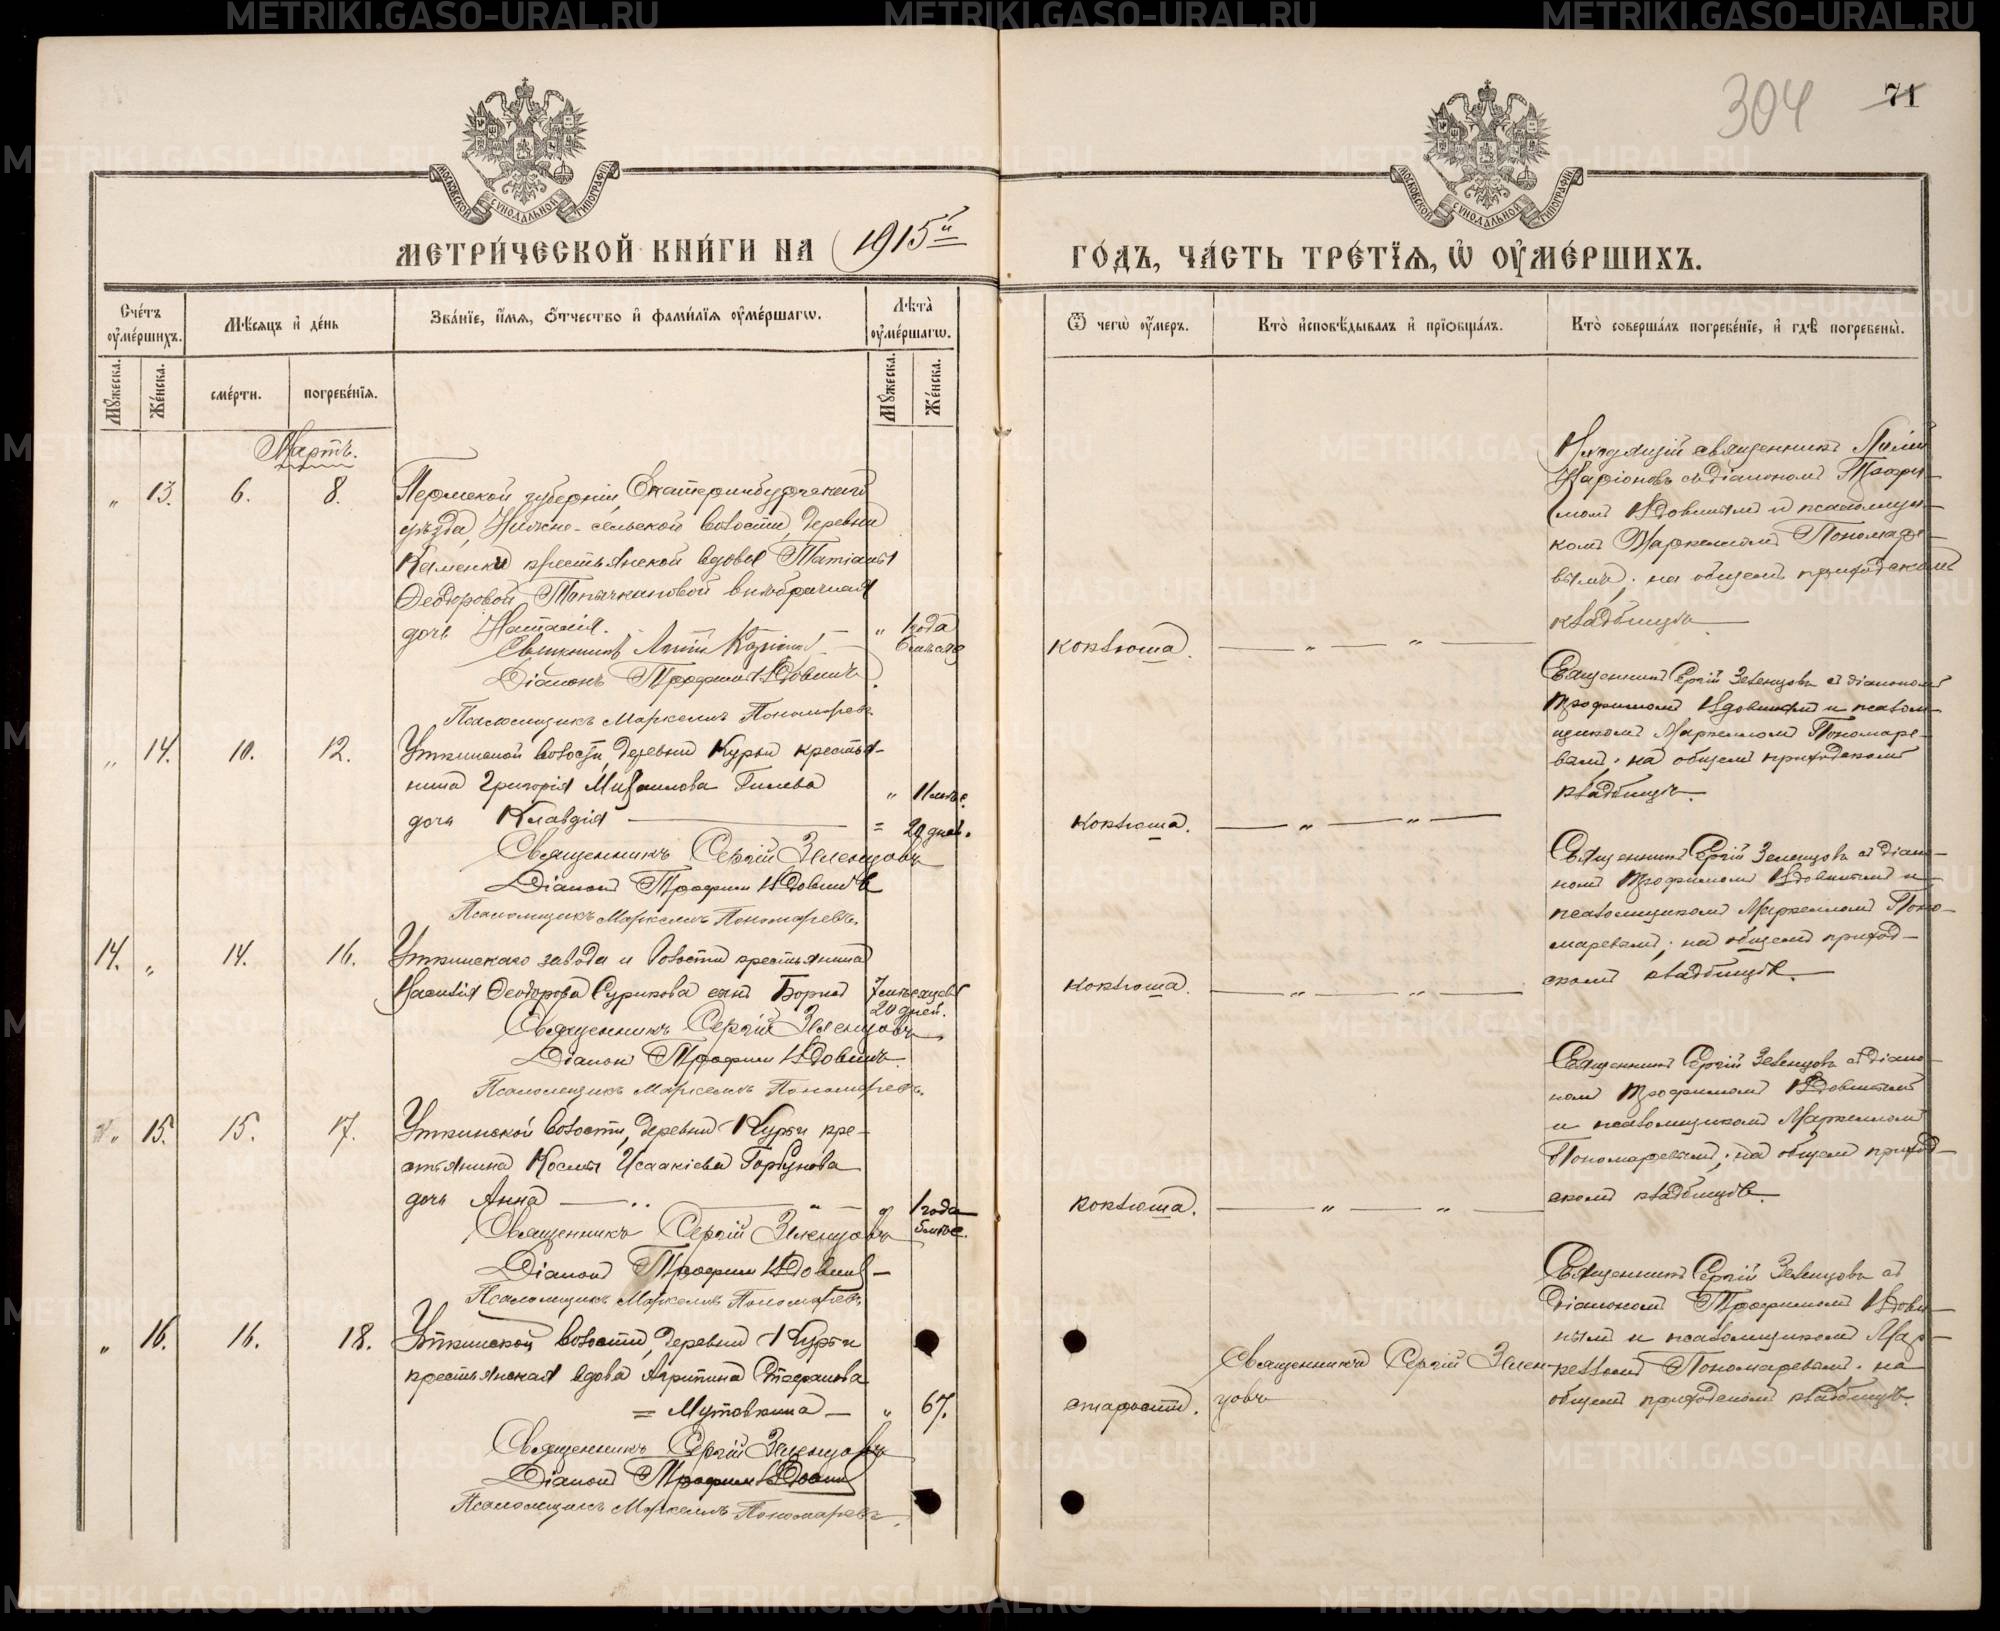 304
71
МОСКОВСКОЙ СУНОДАЛЬНОЙ ТИПОГРАФІИ
МОСКОВСКОЙ СУНОДАЛЬНОЙ ТИПОГРАФІИ
МЕТРИ́ЧЕСКОЙ КНИ́ГИ НА 1915й
ГО́ДЪ, ЧА́СТЬ ТРЕ́ТІѦ, Ѡ҆ ОУ҆МЕ́РШИХЪ.
Сче́тъ оу҆ме́ршихъ.
Мѣ́сѧцъ и҆ де́нь
Зва́нїе, и҆́мѧ, ѻ҆́тчество и҆ фами́лїѧ оу҆ме́ршагѡ.
Лѣ́та оу҆ме́ршагѡ.
Ѿ чегѡ̀ оу҆́меръ.
Кто̀ и҆сповѣ́дывалъ и҆ прїѡбща́лъ.
Кто̀ соверша́лъ погребе́нїе, и҆ гдѣ̀ погребены̀.
Мꙋ́жеска.
Же́нска.
сме́рти.
погребе́нїѧ.
Мꙋ́жеска.
Же́нска.
Мартъ.
„ 13. 6. 8.
Пермской губерніи, Екатеринбургскаго
уѣзда, Нижно-сельской волости, деревни
Каменки крестьянской вдовы Татіаны
Ѳеодоровой Топычкановой внѣбрачная
дочь Наталія. „ 1 года
6 мѣсяц
Священникъ
Діаконъ Трофимъ Вдовинъ
Псаломщикъ Маркеллъ Пономаревъ
коклюша. — „ — „ —
священникъ
Иларіоновъ съ діакономъ Трофи-
момъ Вдовинымъ и псаломщи-
комъ Маркелломъ Пономаре-
вымъ; на общемъ приходскомъ
кладбищѣ
„ 14. 10. 12.
Уткинской волости, деревни Курьи крестья-
нина Григорія Михаилова Гилева
дочь Клавдія „ 11 мѣс.
= 24 дней.
Священникъ Сергій Зеленцовъ
Діаконъ Трофимъ Вдовинъ
Псаломщикъ Маркеллъ Пономаревъ.
коклюша. — „ — „ —
Священникъ Сергій Зеленцовъ съ діакономъ
Трофимомъ Вдовинымъ и псалом-
щикомъ Маркелломъ Пономаре-
вымъ; на общемъ приходскомъ
кладбищѣ.
14. „ 14. 16.
Уткинскаго завода и волости крестьянина
Василія Ѳеодорова Сурикова сынъ Борисъ 7 мѣсяцевъ
20 дней.
Священникъ Сергій Зеленцовъ
Діаконъ Трофимъ Вдовинъ
Псаломщикъ Маркеллъ Пономаревъ.
коклюша. — „ — „ —
Священникъ Сергій Зеленцовъ съ діако-
номъ Трофимомъ Вдовинымъ и
псаломщикомъ Маркелломъ Поно-
маревымъ; на общемъ приход-
скомъ кладбищѣ.
„ 15. 15. 17.
Уткинской волости, деревни Курьи кре-
стьянина Космы Исаакіева Горбунова
дочь Анна „ 1 года
6 мѣс.
Священникъ Сергій Зеленцовъ
Діаконъ Трофимъ Вдовинъ
Псаломщикъ Маркеллъ Пономаревъ
коклюша. — „ — „ —
Священникъ Сергій Зеленцовъ съ діако-
номъ Трофимомъ Вдовинымъ
и псаломщикомъ Маркелломъ
Пономаревымъ; на общемъ приход-
скомъ кладбищѣ.
„ 16. 16. 18.
Уткинской волости, деревни Курьи
крестьянская вдова Агрипина Стефанова
= Мутовкина — „ 67.
Священникъ Сергій Зеленцовъ
Діаконъ Трофимъ Вдовинъ
Псаломщикъ Маркеллъ Пономаревъ.
старости.
Священникъ Сергій Зелен-
цовъ
Священникъ Сергій Зеленцовъ съ
діакономъ Трофимомъ Вдови-
нымъ и псаломщикомъ Мар-
келломъ Пономаревымъ; на
общемъ приходскомъ кладбищѣ.
METRIKI.GASO-URAL.RU